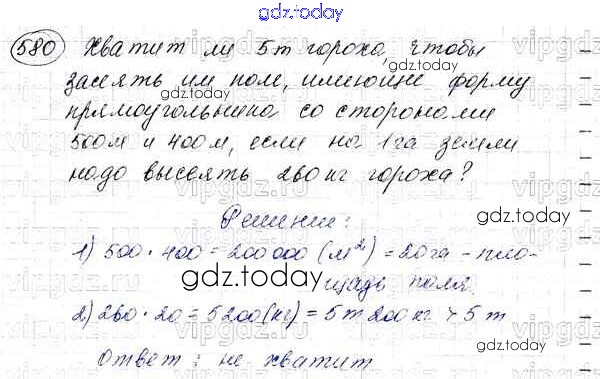 gdz.today
580 Хватит ли 5 т гороха, чтобы
засеять им поле, имеющее форму
прямоугольника со сторонами
500 м и 400 м, если на 1 га земли
надо высеять 260 кг гороха?
Решение:
1) 500 · 400 = 200 000 (м²) = 20 га - пло-
щадь поля.
2) 260 · 20 = 5200 (кг) = 5 т 200 кг > 5 т
Ответ: не хватит
gdz.today
gdz.today
gdz.today
gdz.today
vipgdz.ru